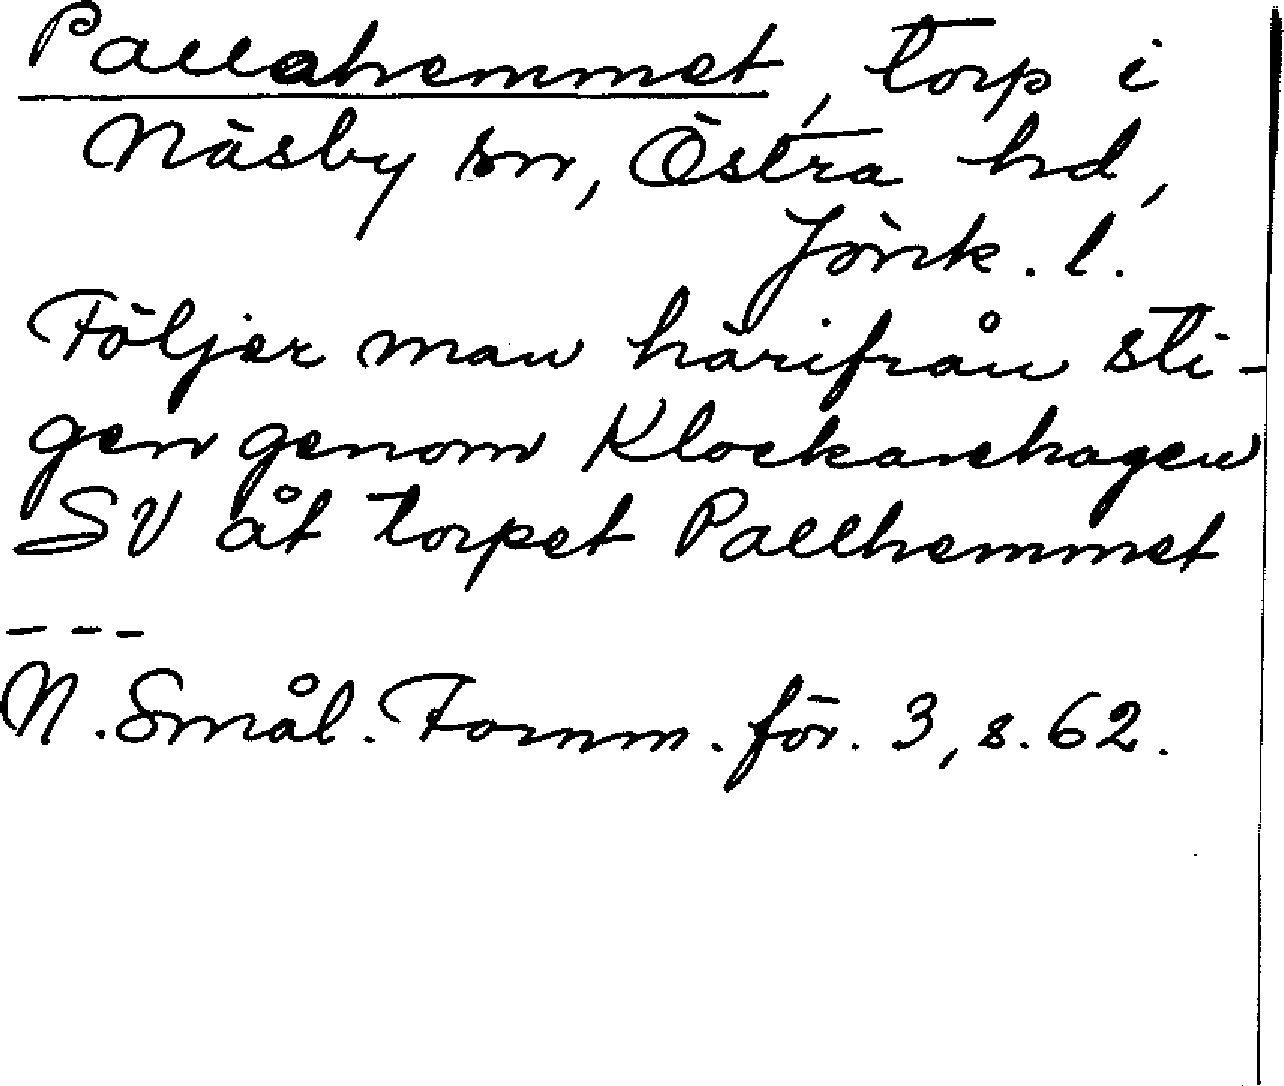 Pallahemmet, torp i
Näsby sn, Östra hd,
Jönk. l.
Följer man härifrån sti-
gen genom Klockarehagen
SV åt torpet Pallhemmet
---
N. Smål. Fornm. för. 3, s. 62.